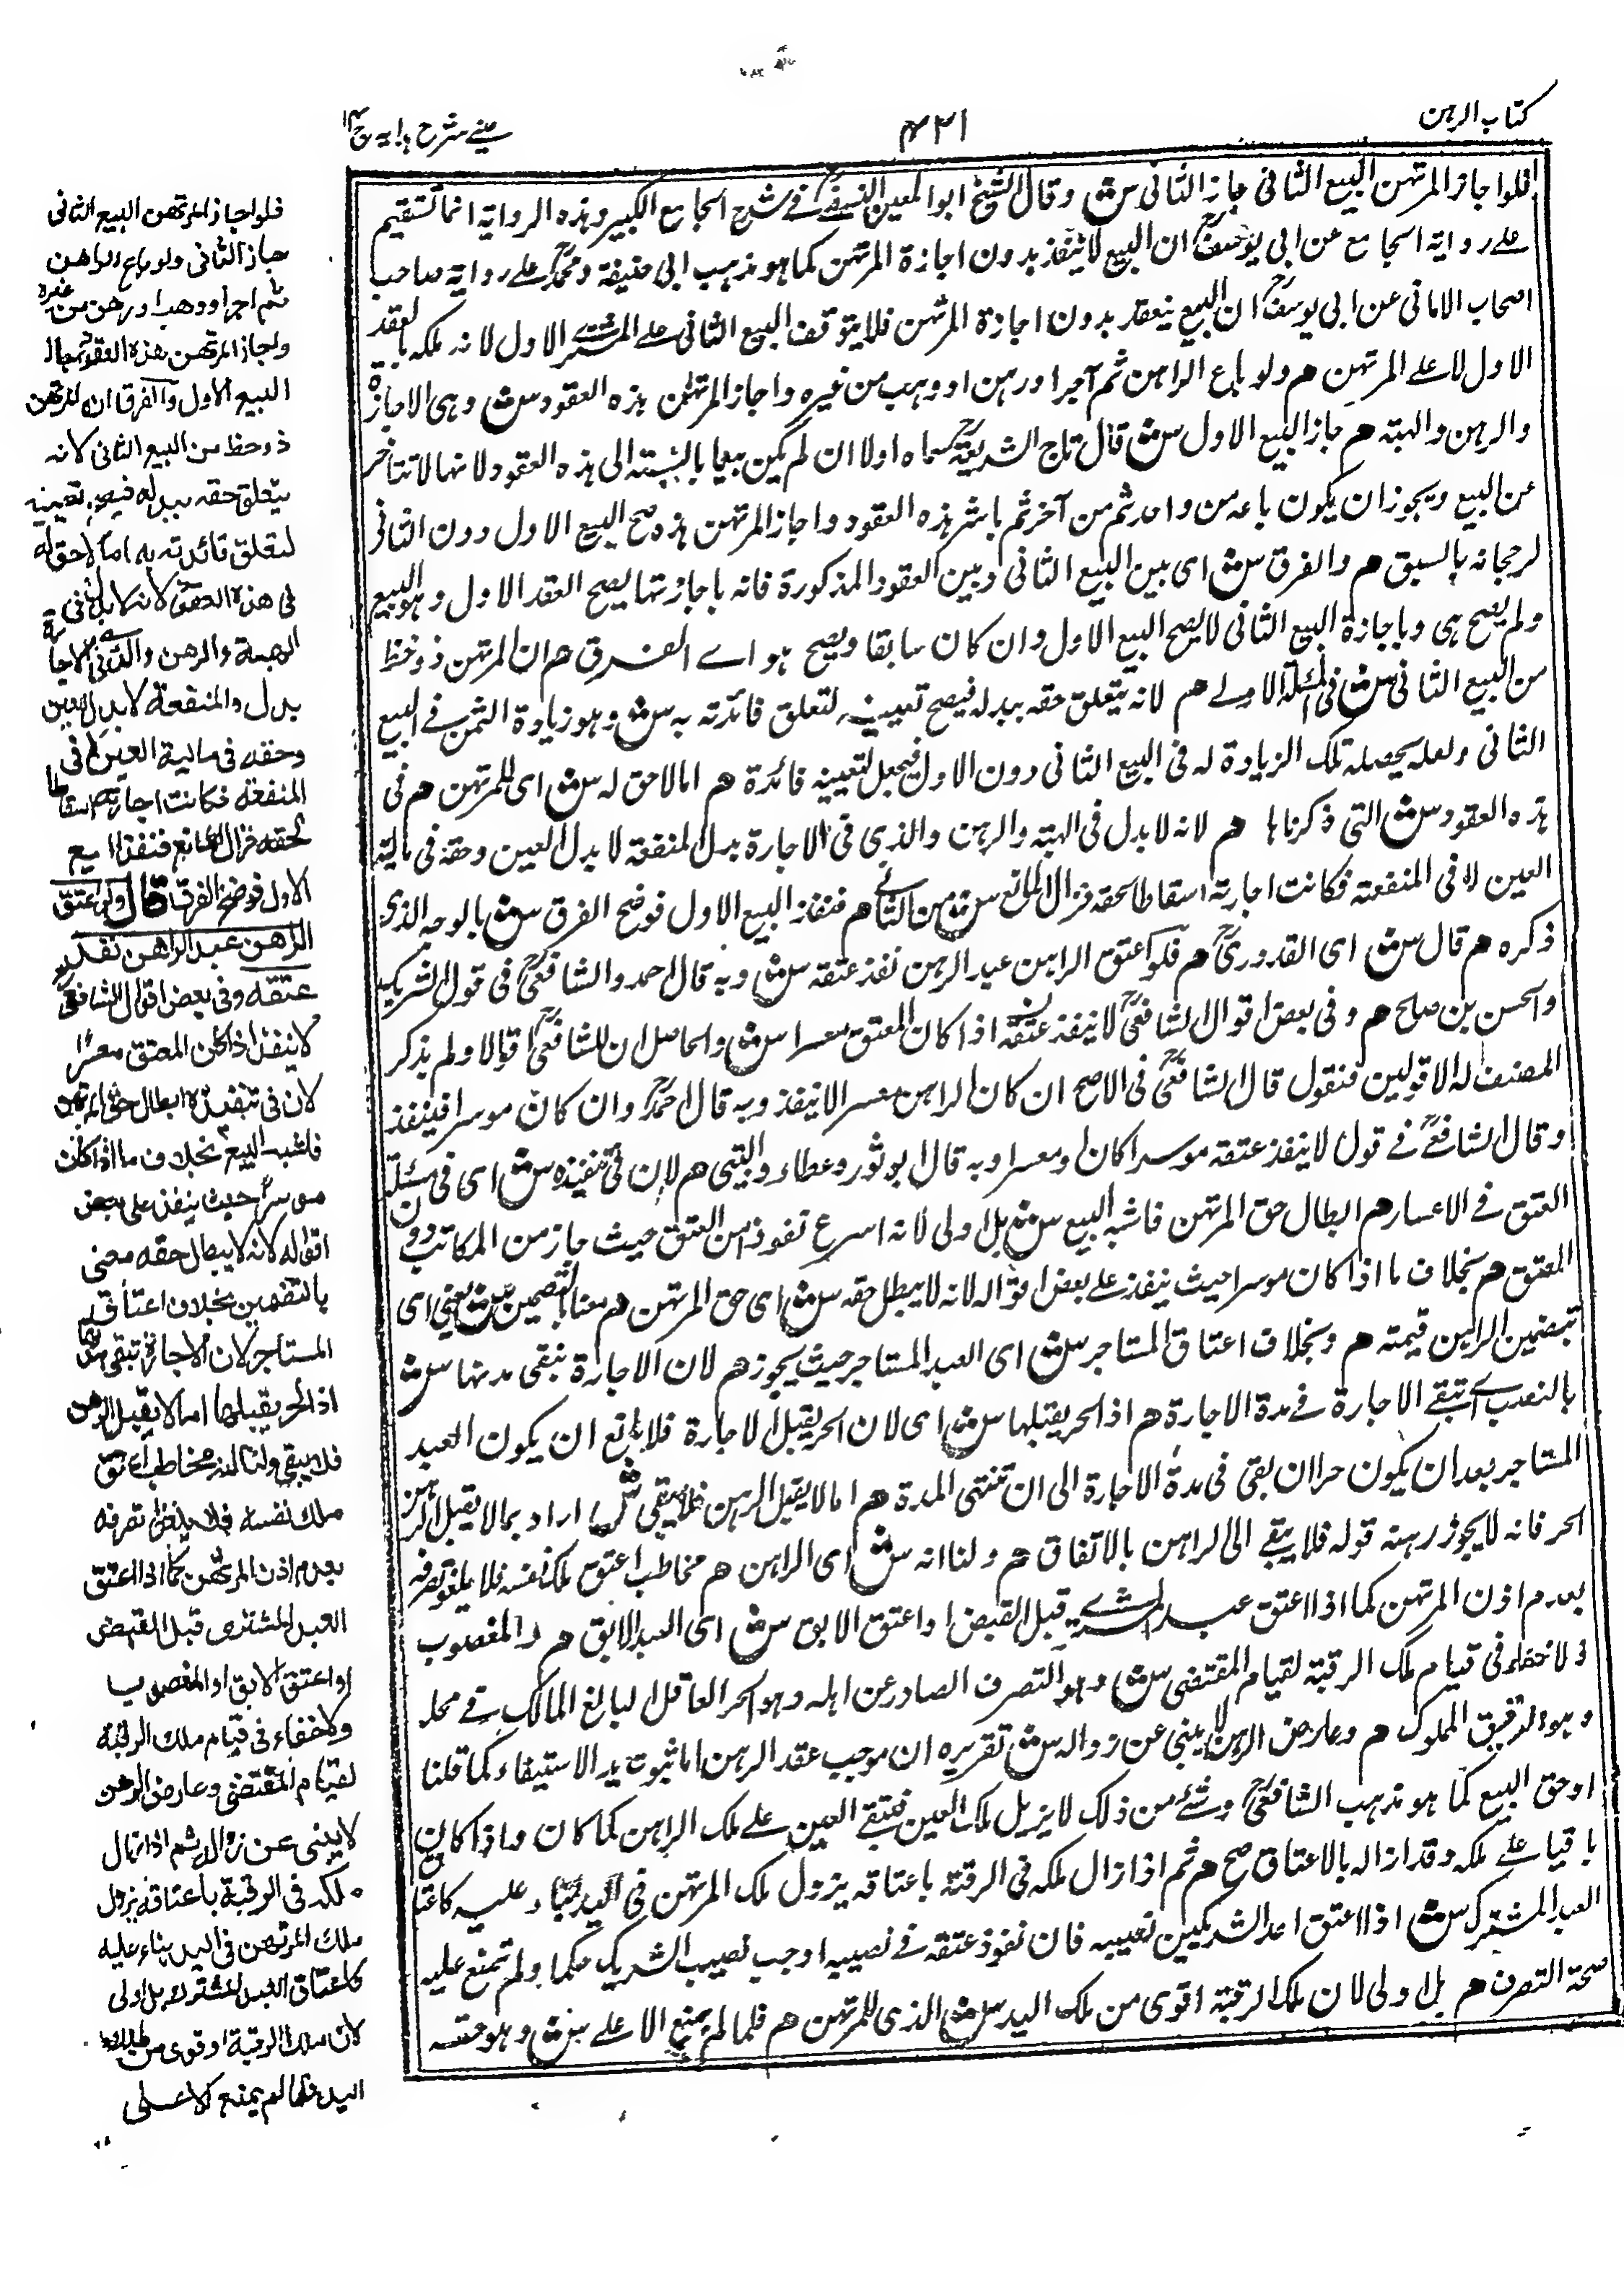 كتاب الرهن
۴۲۱
عيني شرح هدايه ج ۴
فلو اجاز المرتهن البيع الثاني جاز الثاني ش وقال الشيخ ابو المعين النسفيؒ في شرح الجامع الكبير وهذه الرواية انما تستقيم
على رواية الجامع عن ابي يوسفؒ ان البيع لا ينفذ بدون اجازة المرتهن كما هو مذهب ابي حنيفة ومحمدؒ على رواية صاحب
اصحاب الامالي عن ابي يوسفؒ ان البيع ينعقد بدون اجازة المرتهن فلا يتوقف البيع الثاني على المشتري الاول لانه ملكه بالعقد
الاول لا على المرتهن هم ولو باع الراهن ثم آجر او رهن او وهب من غيره واجاز المرتهن هذه العقود ش وهي الاجازة
والرهن والهبة هم جاز البيع الاول ش قال تاج الشريعةؒ سماه اولا ان لم يكن بيعا بالنسبة الى هذه العقود لانها لا تتاخر
عن البيع ويجوز ان يكون باعه من واحد ثم من آخر ثم باشر هذه العقود واجاز المرتهن هذه صح البيع الاول دون الثاني
لرجحانه بالسبق هم والفرق ش اى بين البيع الثاني وبين العقود المذكورة فانه باجازتها يصح العقد الاول وهو البيع
ولم يصح هي وباجازة البيع الثاني لا يصح البيع الاول وان كان سابقا ويصح هو اى الفرق هم ان المرتهن ذو حظ
من البيع الثاني ش في المسئلة الاولى هم لانه يتعلق حقه ببدله فيصح تعيينه لتعلق فائدته به ش وهو زيادة الثمن في البيع
الثاني ولعله يحصله تلك الزيادة له في البيع الثاني دون الاول فيجعل لتعيينه فائدة هم اما لا حق له ش اى للمرتهن هم في
هذه العقود ش التي ذكرناها هم لانه لا بدل في الهبة والرهن والذي في الاجارة بدل المنفعة لا بدل العين وحقه في مالية
العين لا في المنفعة فكانت اجازته اسقاطا لحقه فزال المانع ش من الثاني هم فنفذ البيع الاول فوضح الفرق ش بالوجه الذي
ذكره هم قال ش اى القدوريؒ هم فلو اعتق الراهن عبد الرهن نفذ عتقه ش وبه قال احمد والشافعيؒ في قول شريك
والحسن بن صالح هم وفي بعض اقوال الشافعيؒ لا ينفذ عتقه اذا كان المعتق معسرا ش والحاصل ان للشافعيؒ اقوالا ولم يذكر
المصنف له الا قولين فنقول قال الشافعيؒ في الاصح ان كان الراهن معسرا لا ينفذ وبه قال احمدؒ وان كان موسرا فينفذ
وقال الشافعيؒ في قول لا ينفذ عتقه موسرا كان او معسرا وبه قال ابو ثور وعطاء والبتي هم لان في تنفيذه ش اى في مسئلة
العتق في الاعسار هم ابطال حق المرتهن فاشبه البيع ش بل اولى لانه اسرع نفوذا من العتق حيث جاز من المكاتب دون
المعتق هم بخلاف ما اذا كان موسرا حيث ينفذ على بعض اقواله لانه لا يبطل حقه ش اى حق المرتهن هم معنا بالتضمين ش يعني اى
بتضمين الراهن قيمته هم وبخلاف اعتاق المستاجر ش اى العبد المستاجر حيث يجوز هم لان الاجارة تبقى مدتها ش
بالنصب اى تبقى الاجارة في مدة الاجارة هم اذ الحر يقبلها ش اى لان الحر يقبل الاجارة فلا مانع ان يكون العبد
المستاجر بعد ان يكون حرا ان بقى في مدة الاجارة الى ان تنتهي المدة هم اما لا يقبل الرهن فلا يبقى ش اراد بما لا يقبل الرهن
الحر فانه لا يجوز رهنه قوله فلا يبقى الى الراهن بالاتفاق هم ولنا انه ش اى الراهن هم مخاطب اعتق ملك نفسه فلا يلغو تصرفه
بعدم اذن المرتهن كما اذا اعتق عبد المشترى قبل القبض او اعتق الابق ش اى العبد الابق هم والمغصوب
ولا خفاء في قيام ملك الرقبة لقيام المقتضى ش وهو التصرف الصادر عن اهله وهو الحر العاقل البالغ المالك في محله
وهو الرقيق المملوك هم وعارض الرهن لا ينبئ عن زواله ش تقريره ان موجب عقد الرهن اما ثبوت يد الاستيفاء كما قلنا
او حق البيع كما هو مذهب الشافعيؒ وشئ من ذلك لا يزيل ملك العين فتبقى العين على ملك الراهن كما كان واذا كان
باقيا على ملكه وقد ازاله بالاعتاق صح هم ثم اذا زال ملكه في الرقبة باعتاقه يزول ملك المرتهن في اليد بناء عليه كاعتاق
العبد المشترك ش اذا اعتق احد الشريكين نصيبه فان نفوذ عتقه في نصيبه اوجب نصيب الشريك حكما ولم تمنع عليه
صحة التصرف هم بل اولى لان ملك الرقبة اقوى من ملك اليد ش الذي للمرتهن هم فلما لم يمنع الاعلى ش وهو حقه
فلو اجاز المرتهن البيع الثاني
جاز الثاني ولو باع الراهن
ثم اجر او وهب او رهن من غيره
واجاز المرتهن هذه العقود جاز
البيع الاول والفرق ان المرتهن
ذو حظ من البيع الثاني لانه
يتعلق حقه ببدله فيصح تعيينه
لتعلق فائدته به اما لا حق له
في هذه العقود لانه لا بدل في
الهبة والرهن والذي في الاجارة
بدل المنفعة لا بدل العين
وحقه في مالية العين لا في
المنفعة فكانت اجازته اسقاطا
لحقه فزال المانع فنفذ البيع
الاول فوضح الفرق قال ولو اعتق
الراهن عبد الراهن نفذ
عتقه وفي بعض اقوال الشافعيؒ
لا ينفذ اذا كان المعتق معسرا
لان في تنفيذه ابطال حق المرتهن
فاشبه البيع بخلاف ما اذا كان
موسرا حيث ينفذ على بعض
اقواله لانه لا يبطل حقه معنى
بالتضمين بخلاف اعتاق
المستاجر لان الاجارة تبقى مدتها
اذ الحر يقبلها اما لا يقبل الرهن
فلا يبقى ولنا انه مخاطب اعتق
ملك نفسه فلا يلغو تصرفه
بعدم اذن المرتهن كما اذا اعتق
العبد المشترى قبل القبض
او اعتق الابق او المغصوب
ولا خفاء في قيام ملك الرقبة
لقيام المقتضى وعارض الرهن
لا ينبى عن زواله ثم اذا زال
ملكه في الرقبة باعتاقه يزول
ملك المرتهن في اليد بناء عليه
كاعتاق العبد المشترك بل اولى
لان ملك الرقبة اقوى من ملك
اليد فلما لم يمنع الاعلى